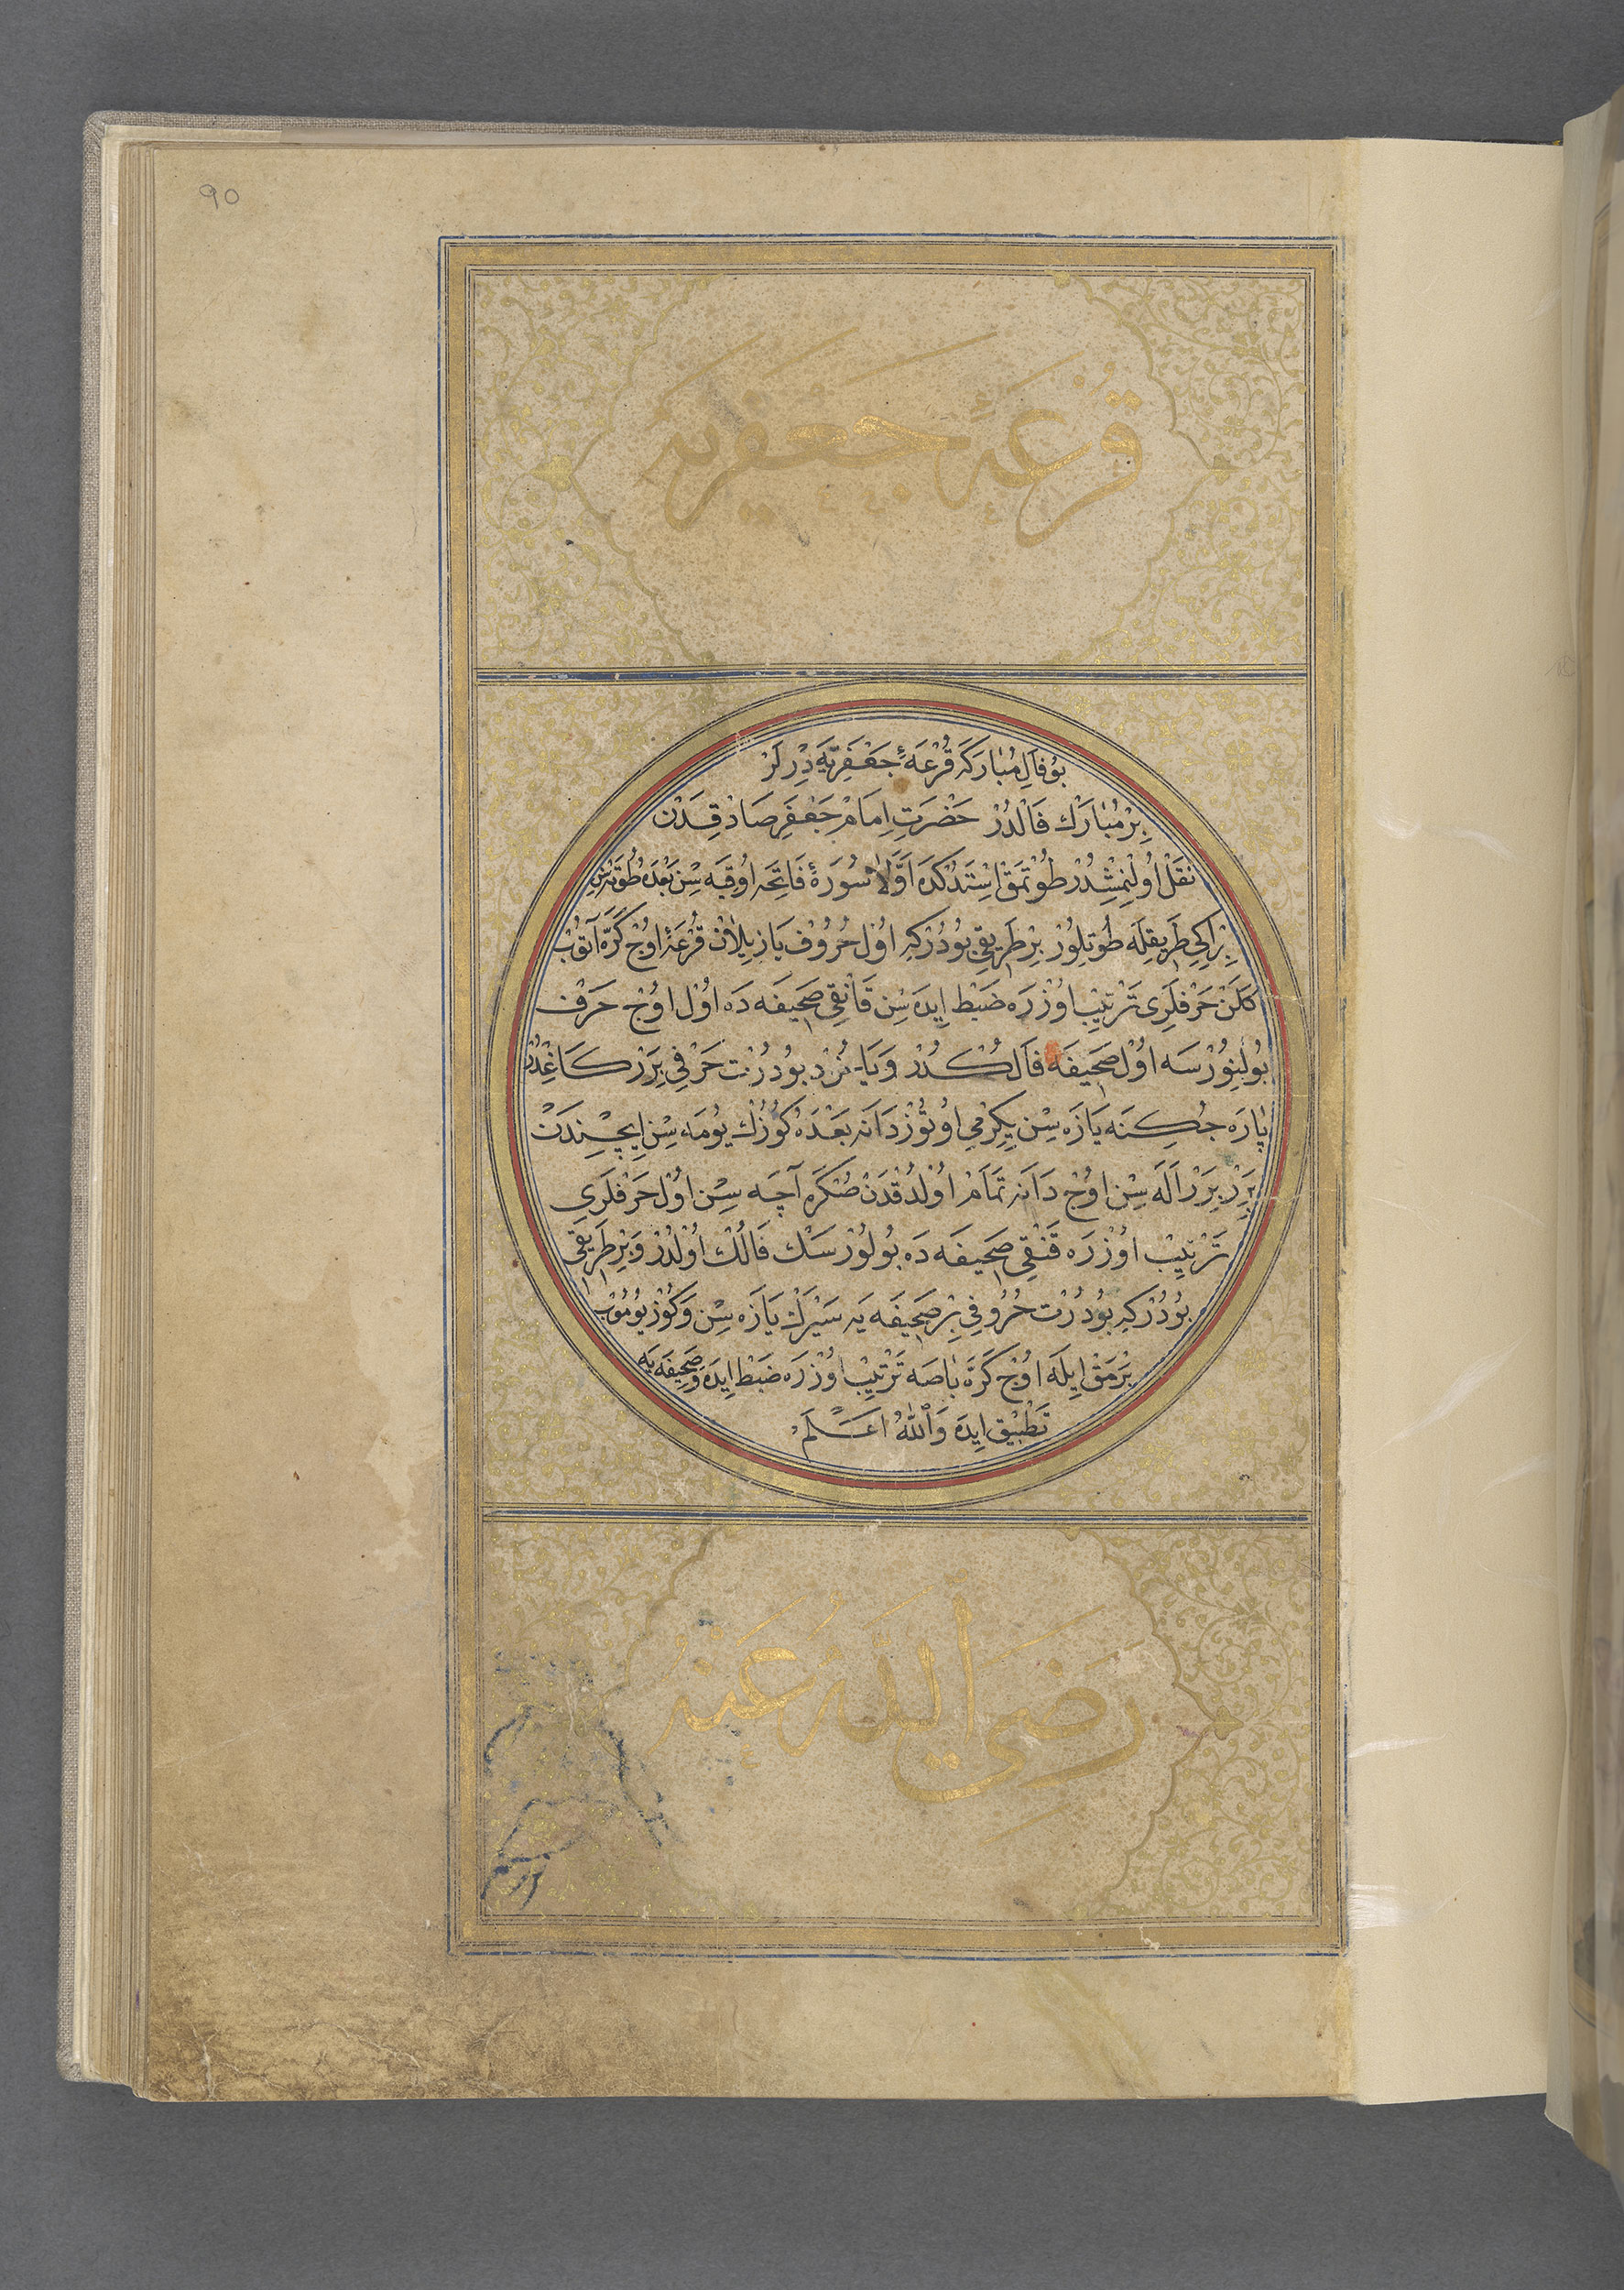 90
قُرْعَهٔ جَعْفَرِيَّه
بُو فَالِ مُبَارَكَه قُرْعَهٔ جَعْفَرِيَّه دِرْلَرْ
بِرْ مُبَارَكْ فَالْدُرْ حَضْرَتِ اِمَامْ جَعْفَرِ صَادِقْدَنْ
نَقْلْ اُولِنْمِشْدُرْ طُوتْمَقْ اِسْتَدُكْدَه اَوَّلَا سُورَهٔ فَاتِحَه اُوقِيَه سِنْ بَعْدَه
بِرْ اِكِى طَرِيقِلَه طُوتِلُورْ بِرْ طَرِيقِى بُودُرْكِه اُولْ حُرُوفْ يَازِيلَانْ قُرْعَهٔ اُوچْ كَرَّه آتُوبْ
كَلَنْ حَرْفلَرِى تَرْتِيبْ اُوزْرَه ضَبْطْ اِيدَه سِنْ قَانْقِى صَحِيفَه دَه اُولْ اُوچْ حَرْفْ
بُولِنُورْسَه اُولْ صَحِيفَه فَالُكْدُرْ وَيَا بُو دُرْتْ حَرْفِى بِرَرْ كَاغِدْ
پَارَه جُكِنَه يَازَه سِنْ يِكِرْمِى اُوتُوزْ دَانَه بَعْدَه كُوزُكْ يُومَه سِنْ اِيچِنْدَنْ
بِرَرْ بِرَرْ اَلَه سِنْ اُوچْ دَانَه تَمَامْ اُولْدُقْدَنْ صُكْرَه آچَه سِنْ اُولْ حَرْفلَرِى
تَرْتِيبْ اُوزْرَه قَنْقِى صَحِيفَه دَه بُولُورْسَكْ فَالُكْ اُولْدُرْ وَبِرْ طَرِيقِى
بُودُرْكِه بُو دُرْتْ حُرُوفِى بِرْ صَحِيفَه يَه سَيْرَكْ يَازَه سِنْ وَكُوزْ يُومُوبْ
بَرْمَقْ اِيلَه اُوچْ كَرَّه بَاصَه تَرْتِيبْ اُوزْرَه ضَبْطْ اِيدَه وَصَحِيفَه يَه
تَطْبِيقْ اِيدَه وَاللّٰهُ اَعْلَمْ
رَضِىَ اللّٰهُ عَنْهُ